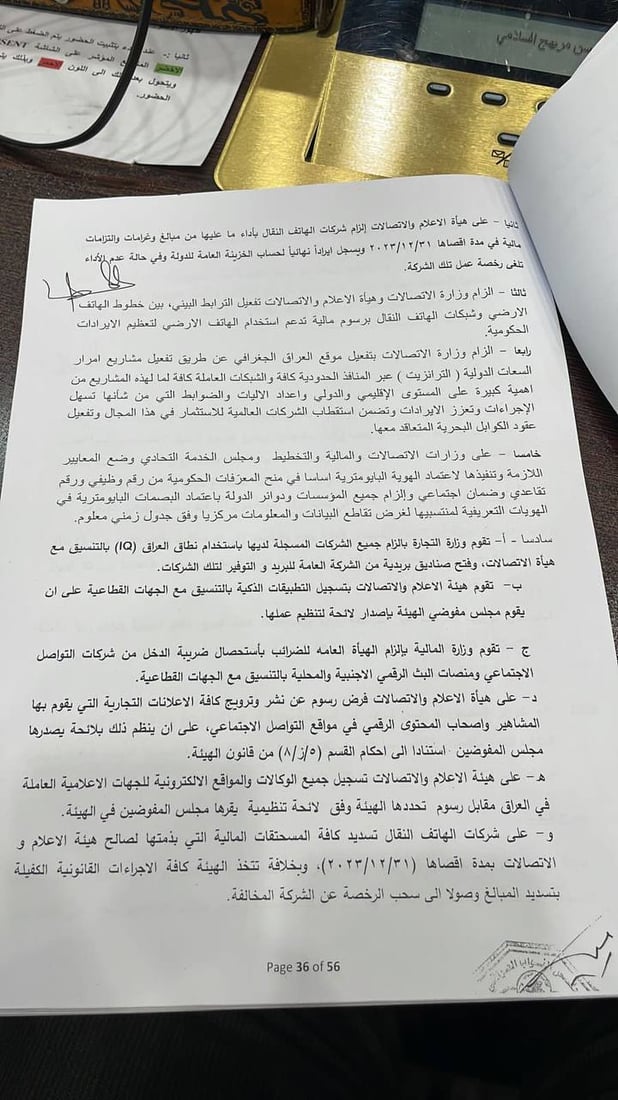 ثانيا :- عند بدء بتثبيت الحضور يتم الضغط على
الاخضر المؤشر على الشاشة PRESENT
ويتحول بعد ذلك الى اللون الاحمر وبذلك يتم
الحضور.
ثانيا – على هيأة الاعلام والاتصالات إلزام شركات الهاتف النقال بأداء ما عليها من مبالغ وغرامات والتزامات
مالية في مدة اقصاها ٢٠٢٣/١٢/٣١ ويسجل ايراداً نهائياً لحساب الخزينة العامة للدولة وفي حالة عدم الأداء
تلغى رخصة عمل تلك الشركة.
ثالثا – الزام وزارة الاتصالات وهيأة الاعلام والاتصالات تفعيل الترابط البيني، بين خطوط الهاتف
الارضي وشبكات الهاتف النقال برسوم مالية تدعم استخدام الهاتف الارضي لتعظيم الايرادات
الحكومية.
رابعا – الزام وزارة الاتصالات بتفعيل موقع العراق الجغرافي عن طريق تفعيل مشاريع امرار
السعات الدولية ( الترانزيت ) عبر المنافذ الحدودية كافة والشبكات العاملة كافة لما لهذه المشاريع من
اهمية كبيرة على المستوى الإقليمي والدولي واعداد الاليات والضوابط التي من شأنها تسهل
الإجراءات وتعزز الايرادات وتضمن استقطاب الشركات العالمية للاستثمار في هذا المجال وتفعيل
عقود الكوابل البحرية المتعاقد معها.
خامسا – على وزارات الاتصالات والمالية والتخطيط ومجلس الخدمة التحادي وضع المعايير
اللازمة وتنفيذها لاعتماد الهوية البايومترية اساسا في منح المعرفات الحكومية من رقم وظيفي ورقم
تقاعدي وضمان اجتماعي وإلزام جميع المؤسسات ودوائر الدولة باعتماد البصمات البايومترية في
الهويات التعريفية لمنتسبيها لغرض تقاطع البيانات والمعلومات مركزيا وفق جدول زمني معلوم.
سادسا - أ– تقوم وزارة التجارة بالزام جميع الشركات المسجلة لديها باستخدام نطاق العراق (IQ) بالتنسيق مع
هيأة الاتصالات، وفتح صناديق بريدية من الشركة العامة للبريد و التوفير لتلك الشركات.
ب– تقوم هيئة الاعلام والاتصالات بتسجيل التطبيقات الذكية بالتنسيق مع الجهات القطاعية على ان
يقوم مجلس مفوضي الهيئة بإصدار لائحة لتنظيم عملها.
ج – تقوم وزارة المالية بإلزام الهيأة العامه للضرائب بأستحصال ضريبة الدخل من شركات التواصل
الاجتماعي ومنصات البث الرقمي الاجنبية والمحلية بالتنسيق مع الجهات القطاعية.
د– على هيأة الاعلام والاتصالات فرض رسوم عن نشر وترويج كافة الاعلانات التجارية التي يقوم بها
المشاهير واصحاب المحتوى الرقمي في مواقع التواصل الاجتماعي، على ان ينظم ذلك بلائحة يصدرها
مجلس المفوضين استنادا الى احكام القسم (٥/ز/٨) من قانون الهيئة.
هـ– على هيئة الاعلام والاتصالات تسجيل جميع الوكالات والمواقع الالكترونية للجهات الاعلامية العاملة
في العراق مقابل رسوم تحددها الهيئة وفق لائحة تنظيمية يقرها مجلس المفوضين في الهيئة.
و– على شركات الهاتف النقال تسديد كافة المستحقات المالية التي بذمتها لصالح هيئة الاعلام و
الاتصالات بمدة اقصاها (٢٠٢٣/١٢/٣١)، وبخلافة تتخذ الهيئة كافة الاجراءات القانونية الكفيلة
بتسديد المبالغ وصولا الى سحب الرخصة عن الشركة المخالفة.
Page 36 of 56